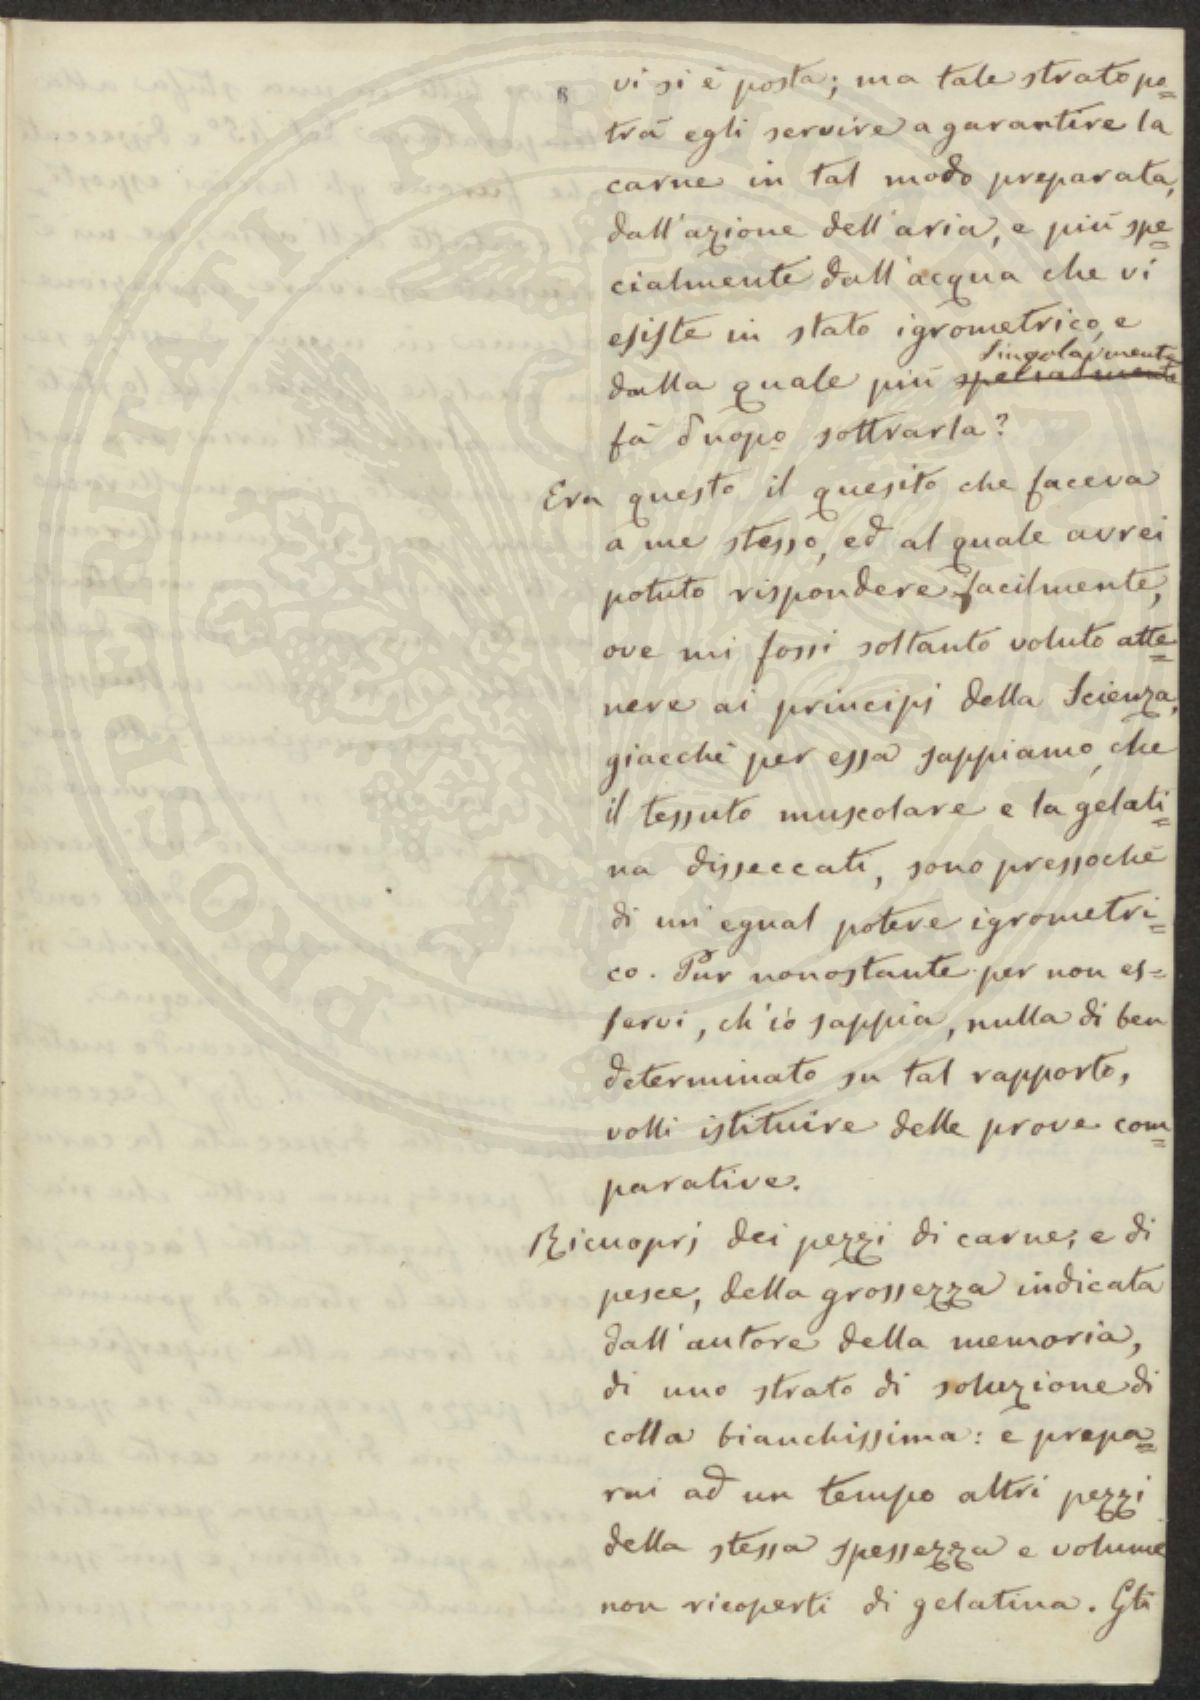 8
vi si è posta; ma tale strato po=
trà egli servire a garantire la
carne in tal modo preparata,
dall'azione dell'aria, e più spe=
cialmente dall'acqua che vi
esiste in stato igrometrico, e
singolarmente
dalla quale più specialmente
fà d'uopo sottrarla?
Era questo il quesito che faceva
a me stesso, ed al quale avrei
potuto rispondere facilmente,
ove mi fossi soltanto voluto atte=
nere ai principj della Scienza,
giacchè per essa sappiamo, che
il tessuto muscolare e la gelati=
na disseccati, sono pressochè
di un'egual potere igrometri=
co. Pur nonostante per non es=
servi, ch'io sappia, nulla di ben
determinato su tal rapporto,
volli istituire delle prove com=
parative.
Ricuoprj dei pezzi di carne, e di
pesce, della grossezza indicata
dall'autore della memoria,
di uno strato di soluzione di
colla bianchissima: e prepa=
rai ad un tempo altri pezzi
della stessa spessezza e volume
non ricoperti di gelatina. Gli
PROSPERITATI PVBLICAE AVGENDAE